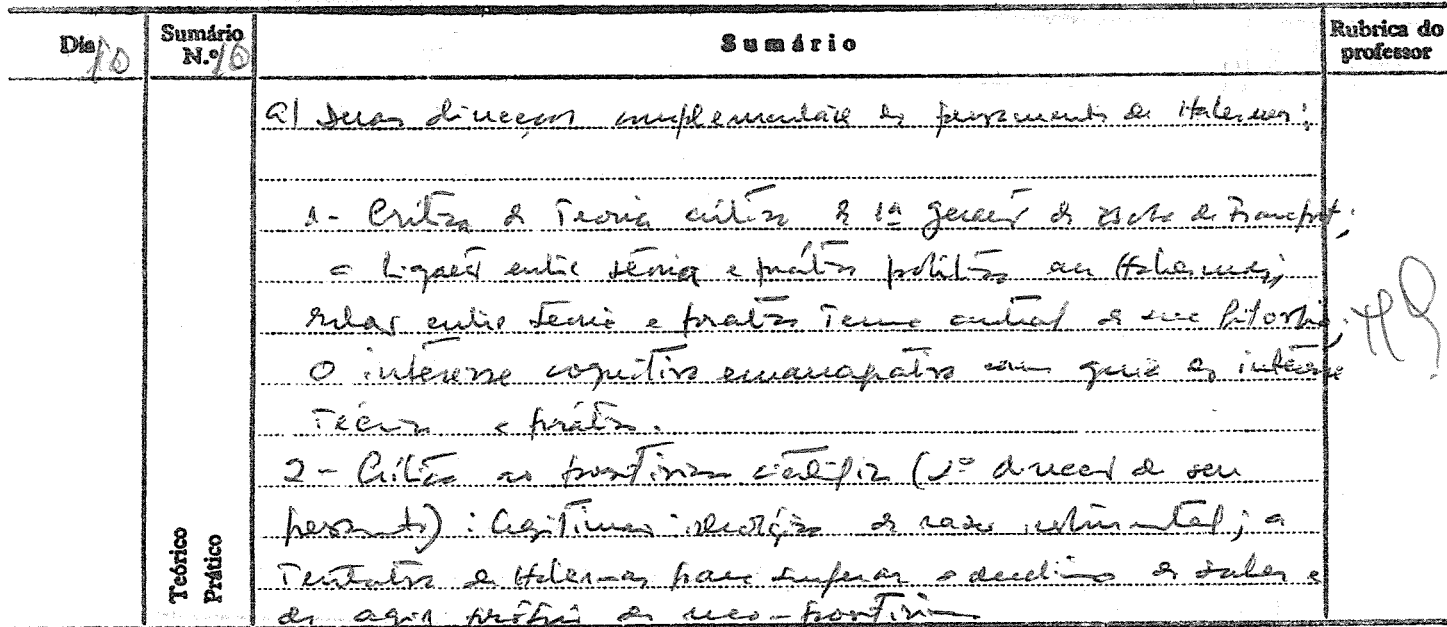 Dia 10
Sumário N.º 10
Sumário
Rubrica do professor
a) Duas direcções complementares do pensamento de Habermas:
1- Crítica da Teoria crítica da 1ª geração da Escola de Francfort;
a ligação entre teoria e prática política em Habermas;
relação entre teoria e prática tema central da sua filosofia;
O interesse cognitivo emancipatório como guia do interesse
técnico e prático.
2- Crítica ao positivismo científico (2ª direcção do seu
pensamento): legitimação ideológica da razão instrumental; a
Tentativa de Habermas para superar o declínio do saber e
do agir do neo-positivismo
Teórico
Prático